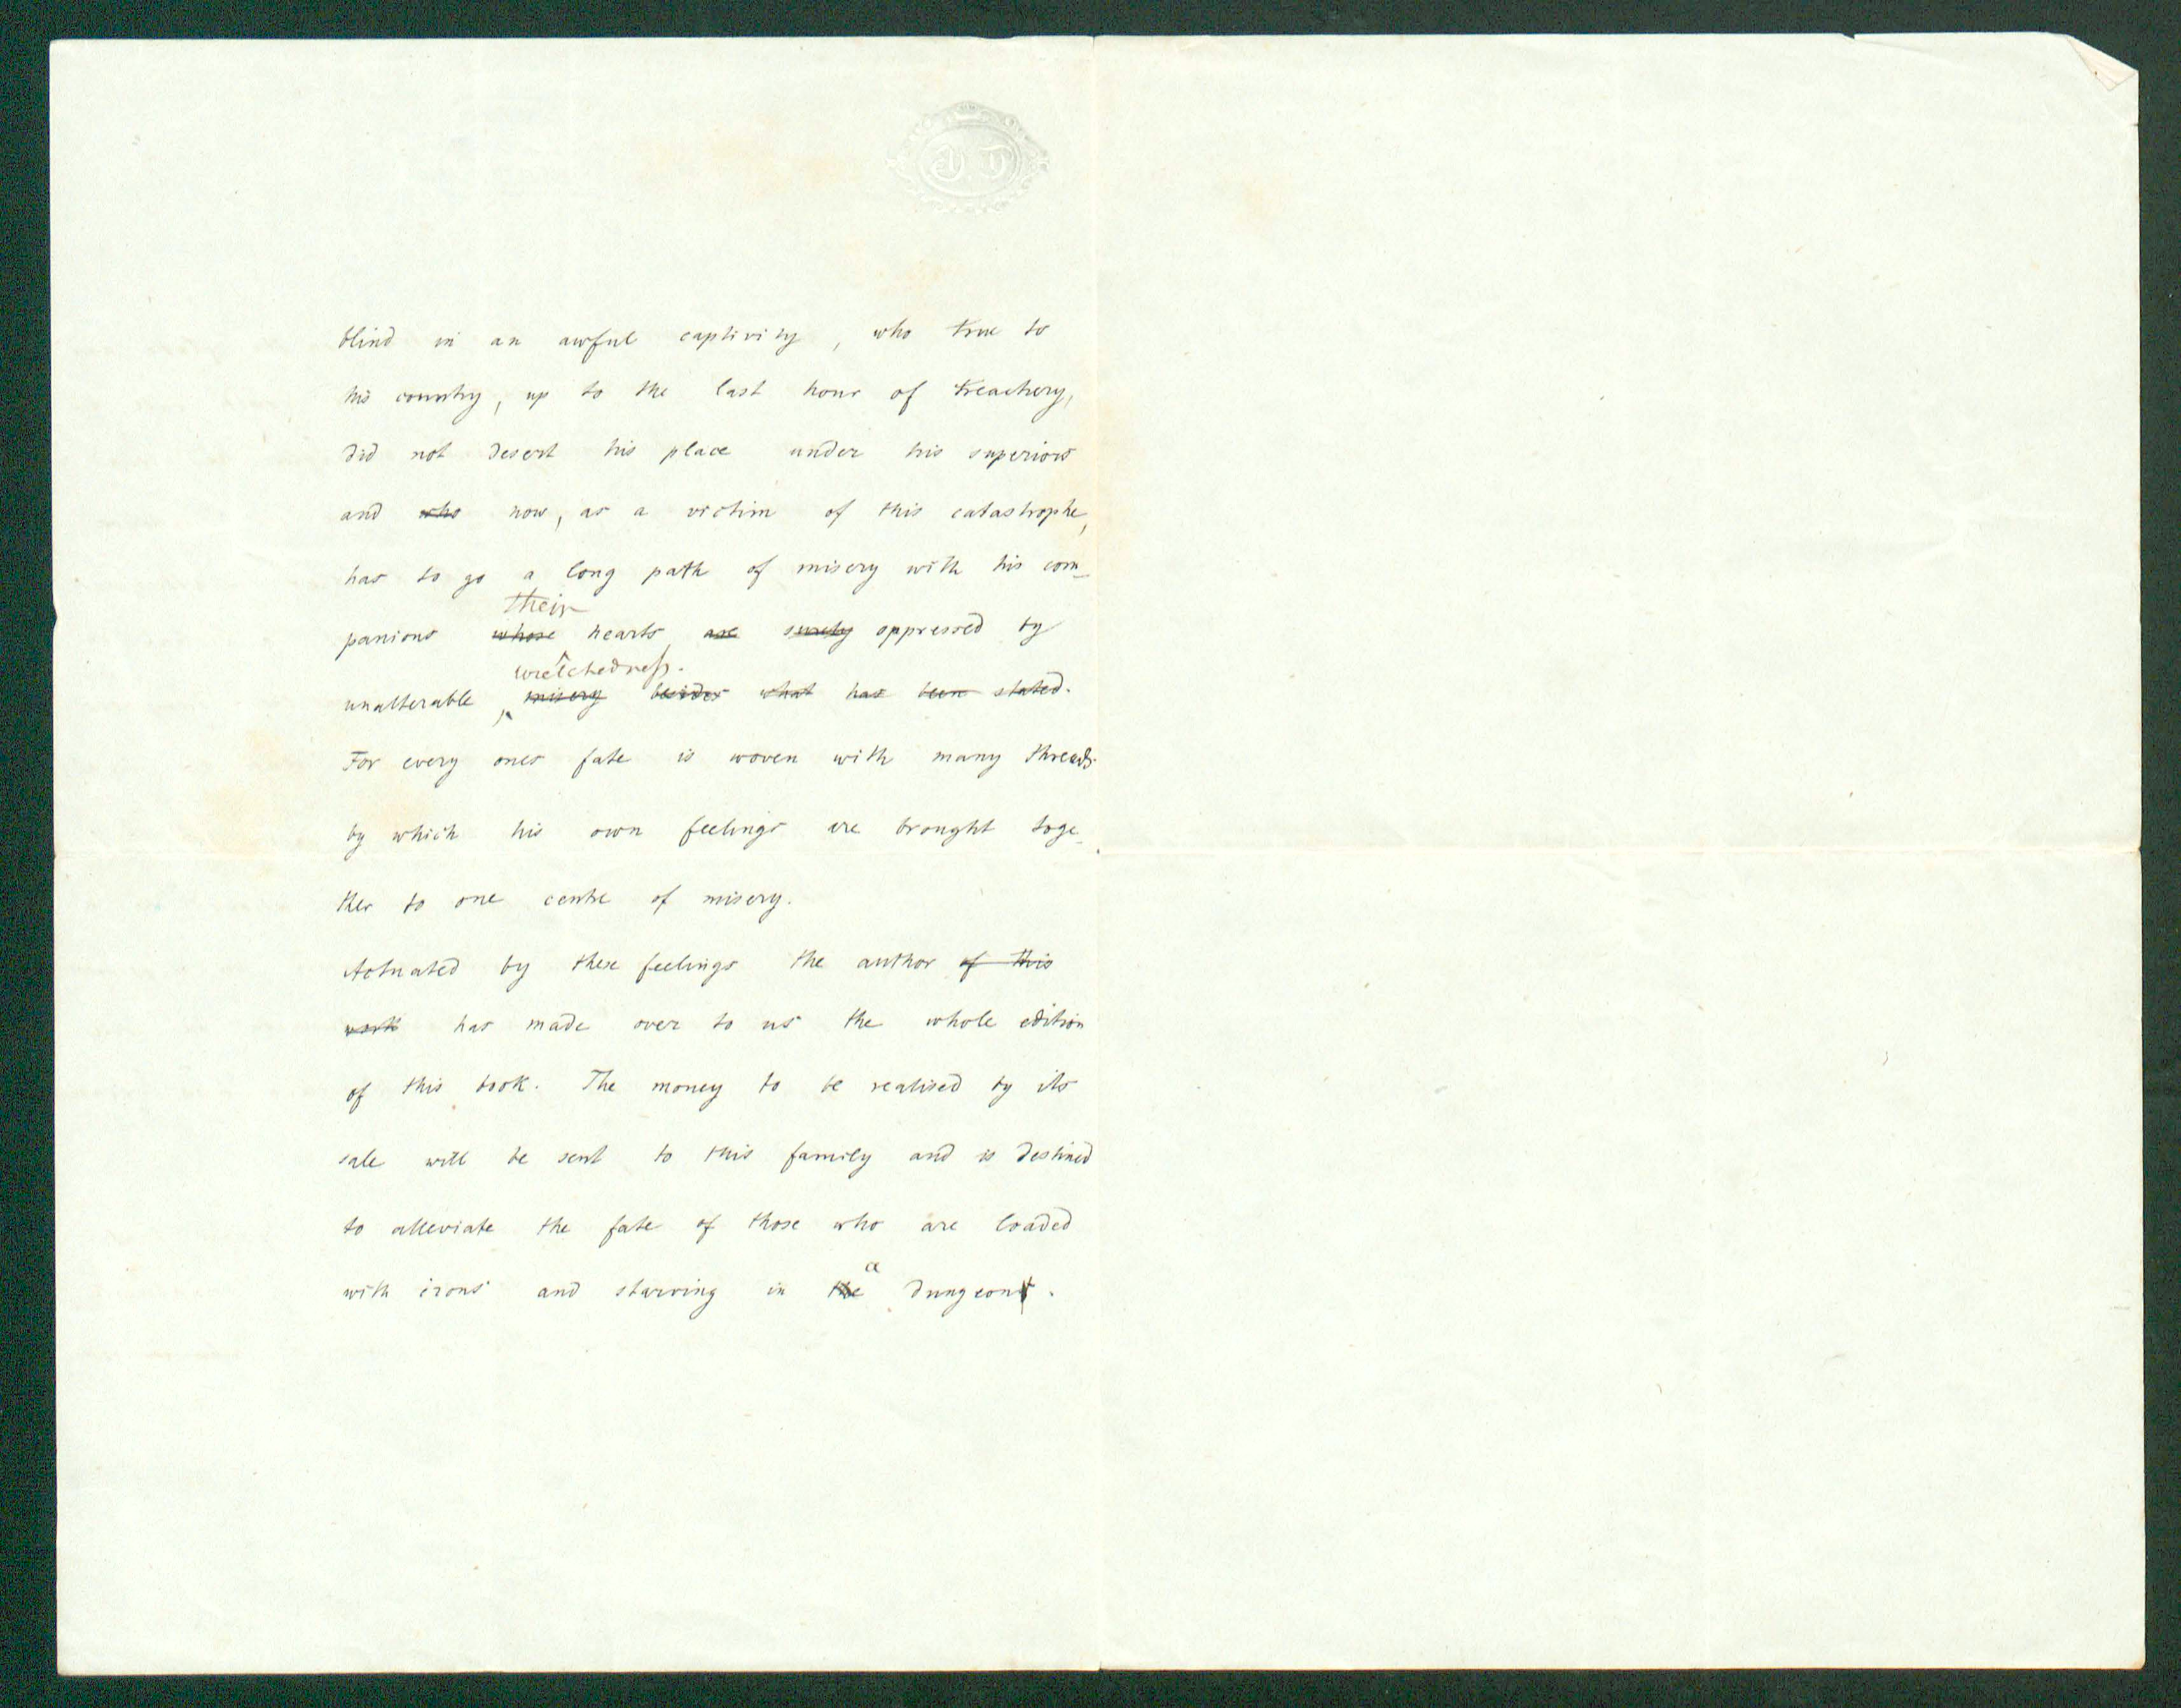 blind in an awful captivity, who true to
his country, up to the last hour of treachery,
did not desert his place under his superiors
and ~~who~~ now, as a victim of this catastrophe,
has to go a long path of misery with his com-
their
panions ~~whose~~ hearts ~~are~~ ~~surely~~ oppressed by
wretchedness.
unalterable, ~~misery~~ ~~besides~~ ~~what~~ ~~has~~ ~~been~~ ~~stated.~~
For every ones fate is woven with many threads
by which his own feelings are brought toge-
ther to one centre of misery.
Actuated by these feelings the author ~~of this~~
~~work~~ has made over to us the whole edition
of this book. The money to be realised by its
sale will be sent to this family and is destined
to alleviate the fate of those who are loaded
a
with irons and starving in ~~the~~ dungeon~~s~~.